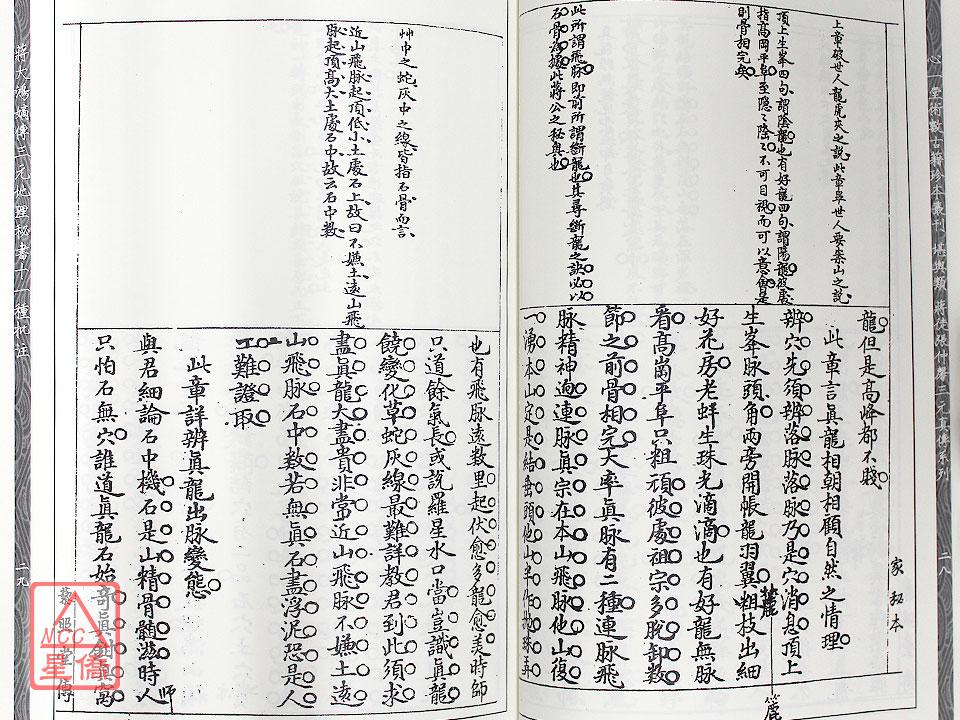 心一堂術數古籍珍本叢刊 堪輿類 蔣徒張仲馨三元真傳系列
二八
上章破世人龍虎夾之說此章早世人要案山之說
頂上生峯四句謂陰龍也有好龍四句謂陽龍彼處
指高岡平阜至隱隱隆隆不可目視而可以意會是
則骨相完矣
此所謂飛脉即前所謂斷龍也其尋斷龍之訣必以
石骨為據此蔣公之秘奧也
龍但是高峰都不賤
此章言眞龍相朝相顧自然之情理
辨穴先須辨落脉落脉乃是穴消息頂上
生峯脉頭角兩旁開帳龍羽翼粗枝出細
好花房老蚌生珠光滴滴也有好龍無脉
看高崗平阜只粗頑彼處祖宗多脫卸數
節之前骨相完大率眞脉有二種連脉飛
脉精神逈連脉眞宗在本山飛脉他山復
一湧本山定是結垂頭他山半作拋珠弄
家秘本
麓
艸中之蛇灰中之線皆指石骨而言
近山飛脉起頂低小土處石上故曰不嫌土遠山飛
脉起頂高大土處石中故云石中数
也有飛脉遠数里起伏愈多龍愈美時師
只道餘氣長或説羅星水口當豈識眞龍
饒變化草蛇灰線最難詳教君到此須求
盡眞龍大盡貴非常近山飛脉不嫌土遠
山飛脉石中数若無眞石盡浮泥恐是人
工難證取
此章詳辨眞龍出脉變態
與君細論石中機石是山精骨髓滋時人
只怕石無穴誰道眞龍石始奇眞龍眞窩
師
蔣大鴻嫡傳三元地理秘書十一種批注
一九
黎照堂傳
NCC
星僑